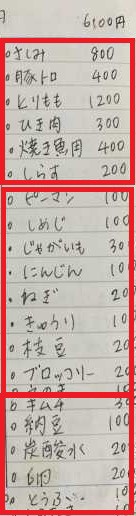 6,100円
。さしみ 800
。豚トロ 400
。とりもも 1200
。ひき肉 300
・焼き魚用 400
。しらす 200
。ピーマン 100
。しめじ 100
・じゃがいも 30
・にんじん 10
・ねぎ 20
・きゅうり 10
・枝豆 20
。ブロッコリー 20
。キムチ 30
。納豆 100
・炭酸水 20
20
。とうふ 10